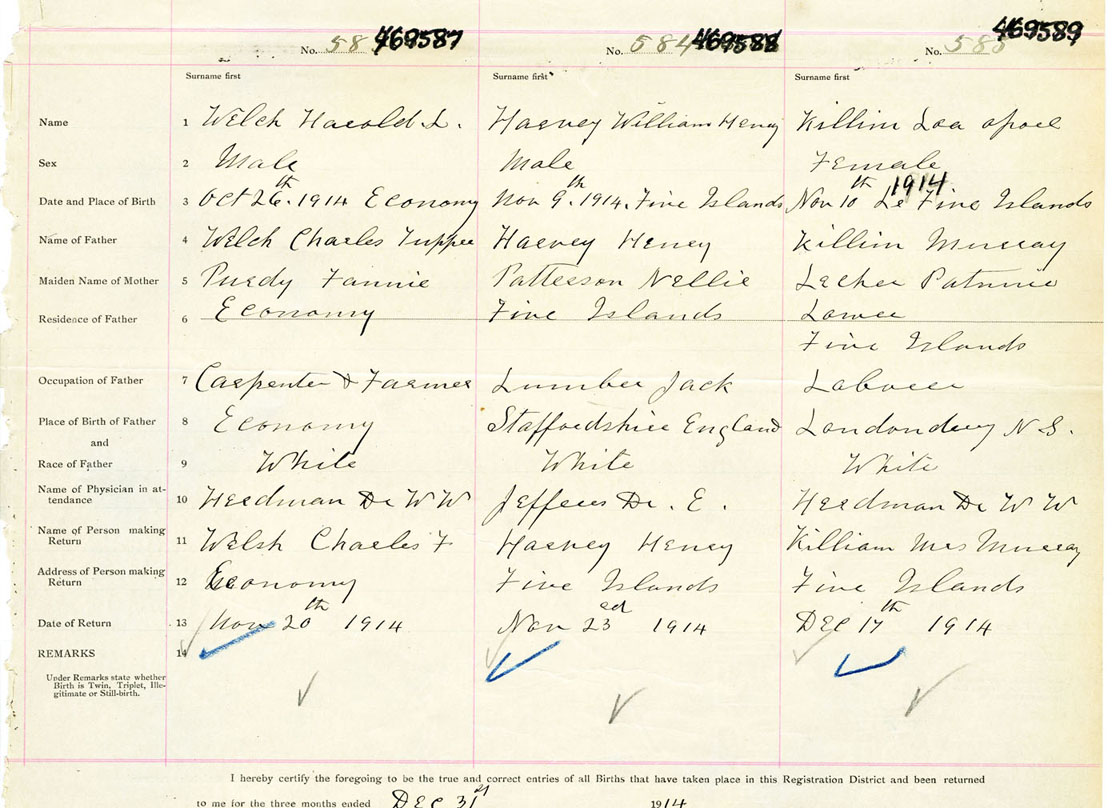 No. 58 469587 No. 584 469588 No. 585 469589
Surname first Surname first Surname first
Name 1 Welch Harold L. Harvey William Henry Killim
Sex 2 Male Male Female
Date and Place of Birth 3 Oct 26th. 1914 Economy Nov 9th. 1914. Five Islands Nov 10th 1914 Five Islands
Name of Father 4 Welch Charles Tupper Harvey Henry Killim Murray
Maiden Name of Mother 5 Purdy Fannie Patterson Nellie
Residence of Father 6 Economy Five Islands Lower
Five Islands
Occupation of Father 7 Carpenter & Farmer Lumber Jack Laborer
Place of Birth of Father 8 Economy Staffordshire England Londonderry N.S.
and
Race of Father 9 White White White
Name of Physician in at-
tendance 10 Herdman Dr W W Jeffers Dr. E. Herdman Dr W W
Name of Person making
Return 11 Welsh Charles T Harvey Henry Killiam Mrs Murray
Address of Person making
Return 12 Economy Five Islands Five Islands
Date of Return 13 Nov 20th 1914 Nov 23rd 1914 Dec 17th 1914
REMARKS 14
Under Remarks state whether
Birth is Twin, Triplet, Ille-
gitimate or Still-birth.
I hereby certify the foregoing to be the true and correct entries of all Births that have taken place in this Registration District and been returned
to me for the three months ended Dec 31st 1914